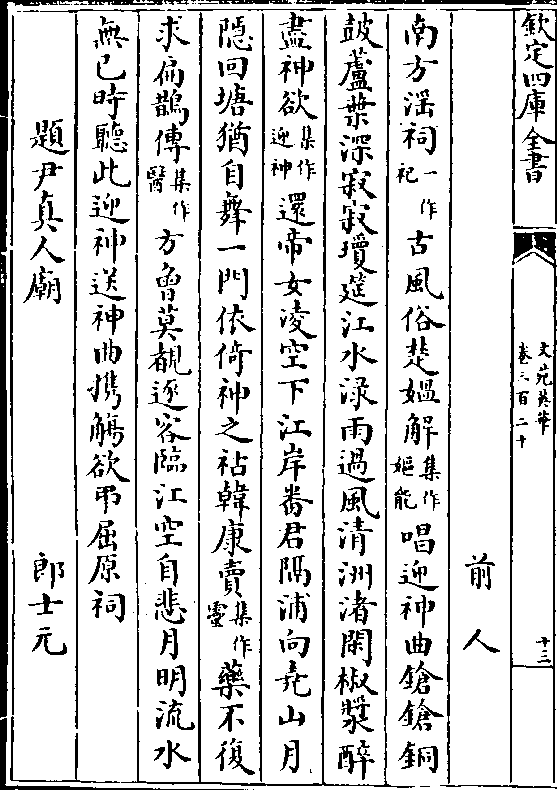 欽定四庫全書
文苑英華
卷三百二十
十三
前人
南方滛祠一作祀古風俗楚媼解集作嫗能唱迎神曲鎗鎗銅
皷蘆葉深寂寂瓊筵江水渌雨過風清洲渚閑椒漿醉
盡神欲集作迎神還帝女凌空下江岸番君隔浦向堯山月
隠回塘猶自舞一門依倚神之祜韓康賣集作靈藥不復
求扁鵲傳集作醫方曾莫覩逐客臨江空自悲月明流水
無已時聽此迎神送神曲携觴欲弔屈原祠
題尹真人廟 郎士元